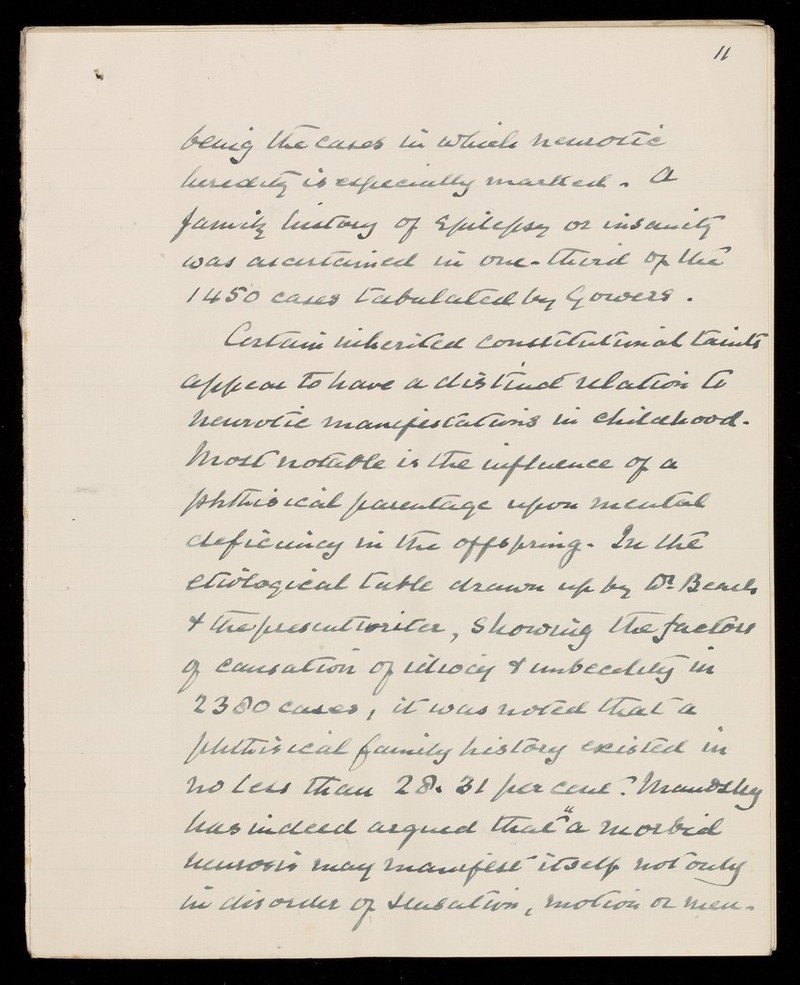 11
being the cases in which neurotic
heredity is especially marked. A
family history of Epilepsy or insanity
was ascertained in one-third of the
1450 cases tabulated by Gowers.
Certain inherited constitutional taints
appear to have a distinct relation to
neurotic manifestations in childhood.
Most notable is the influence of a
phthisical parentage upon mental
deficiency in the offspring. In the
etiological table drawn up by Dr. Beach
& the present writer, showing the factors
of causation of idiocy & imbecility in
2380 cases, it was noted that a
phthisical family history existed in
no less than 28.31 per cent. Maudsley
has indeed argued that "a morbid
neurosis may manifest itself not only
in disorder of sensation, motion or men-